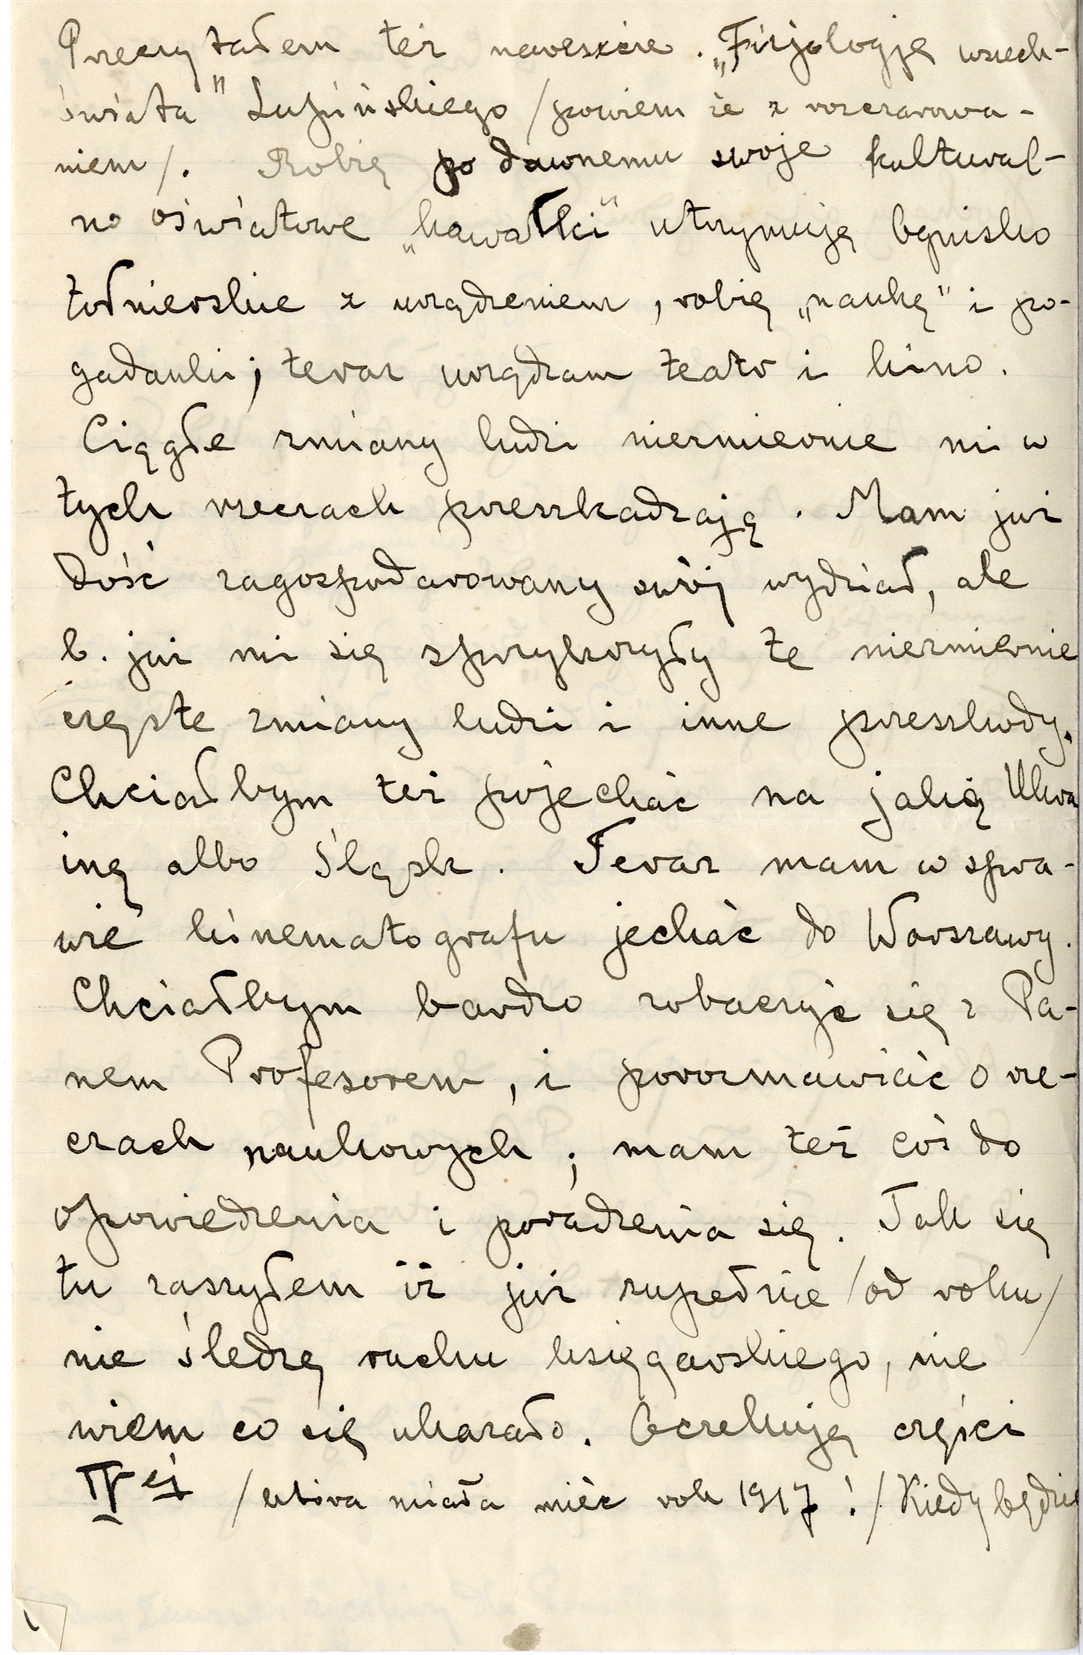 Przeczytałem też nareszcie „Fizjologję wszech-
świata" Łupińskiego /powiem że z rozczarowa-
niem/. Robię po dawnemu swoje kultural-
no oświatowe „kawałki" utrzymuję Ognisko
żołnierskie z urządzeniem, robię „naukę" i po-
gadanki; teraz urządzam teatr i kino.
Ciągłe zmiany ludzi niezmiernie mi w
tych rzeczach przeszkadzają. Mam już
dość zagospodarowany swój wydział, ale
b. już mi się sprzykrzyły te niezmiernie
częste zmiany ludzi i inne przeszkody.
Chciałbym też pojechać na jakią Ukra
inę albo Śląsk. Teraz mam w spra-
wie kinematografu jechać do Warszawy.
Chciałbym bardzo zobaczyć się z Pa-
nem Profesorem, i porozmawiać o rze-
czach naukowych; mam też coś do
opowiedzenia i poradzenia się. Tak się
tu zaszyłem iż już zupełnie /od roku/
nie śledzę ruchu księgarskiego, nie
wiem co się ukazało. Oczekuję części
IV ej /która miała mieć rok 1917!/ Kiedy będzie